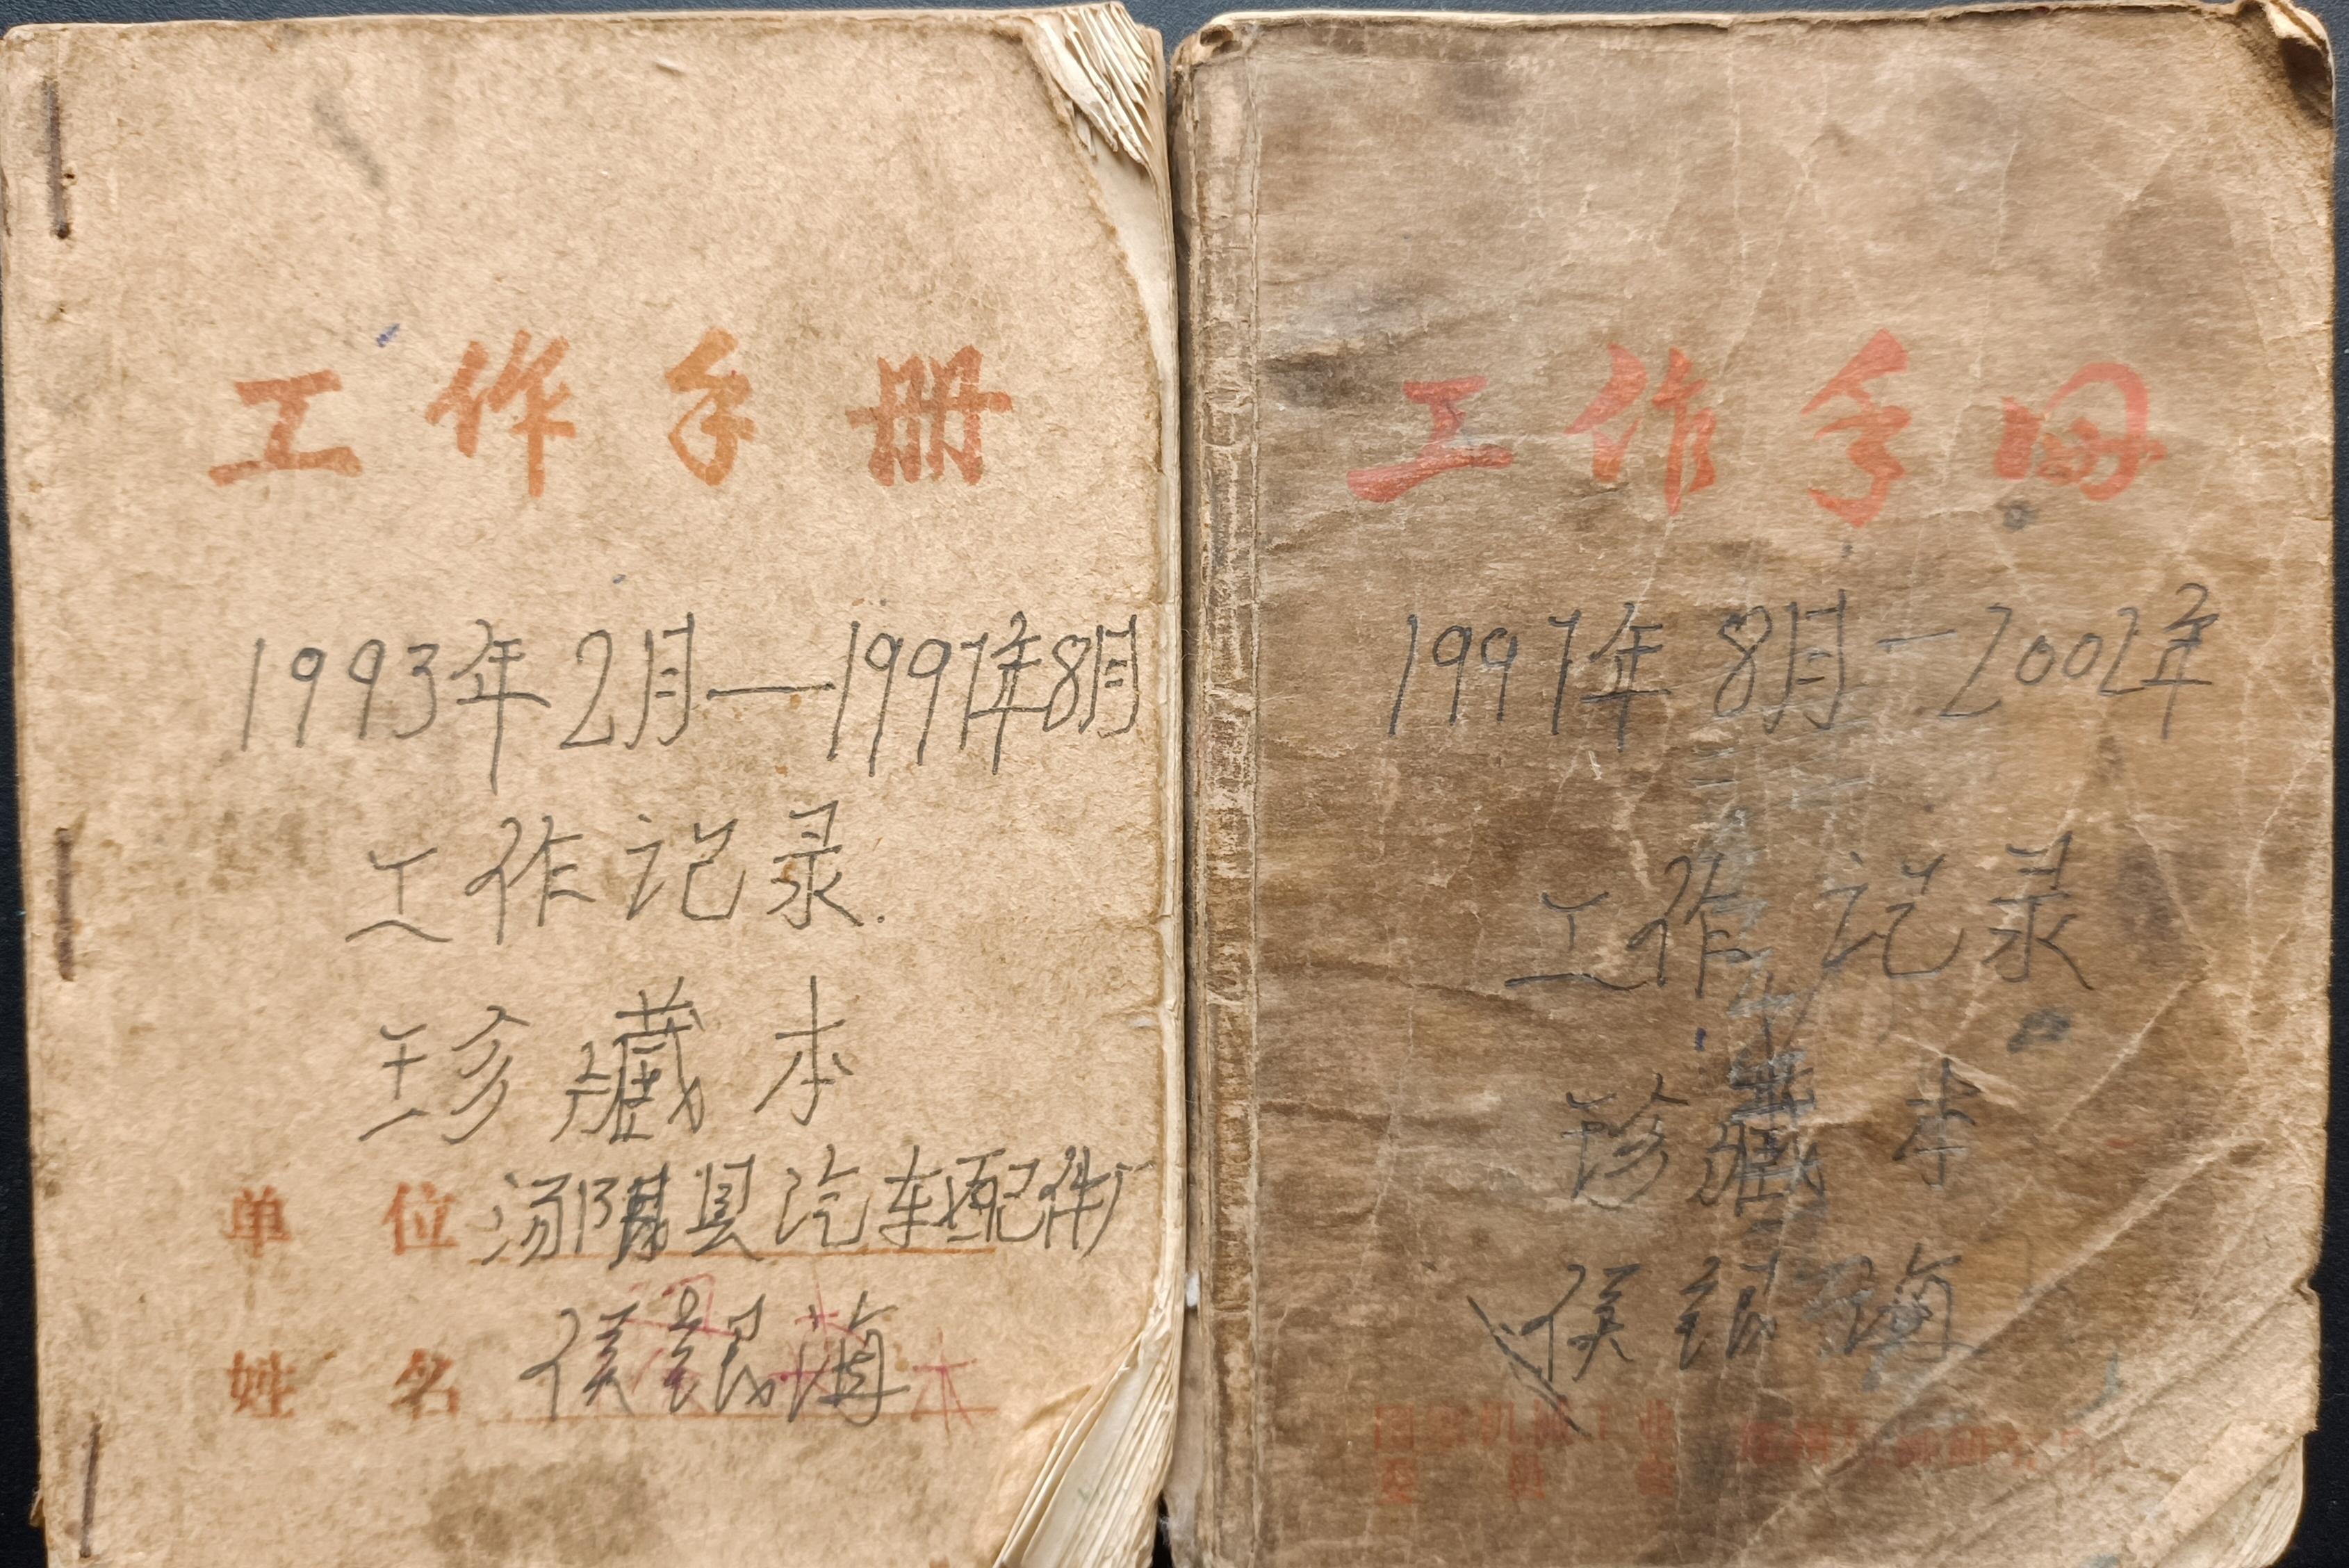 工作手册
1993年2月—1997年8月
工作记录.
珍藏本
单位 汤阴县汽车配件厂
姓名 侯银海
工作手册
1997年8月—2002年
工作记录
珍藏本
侯银海